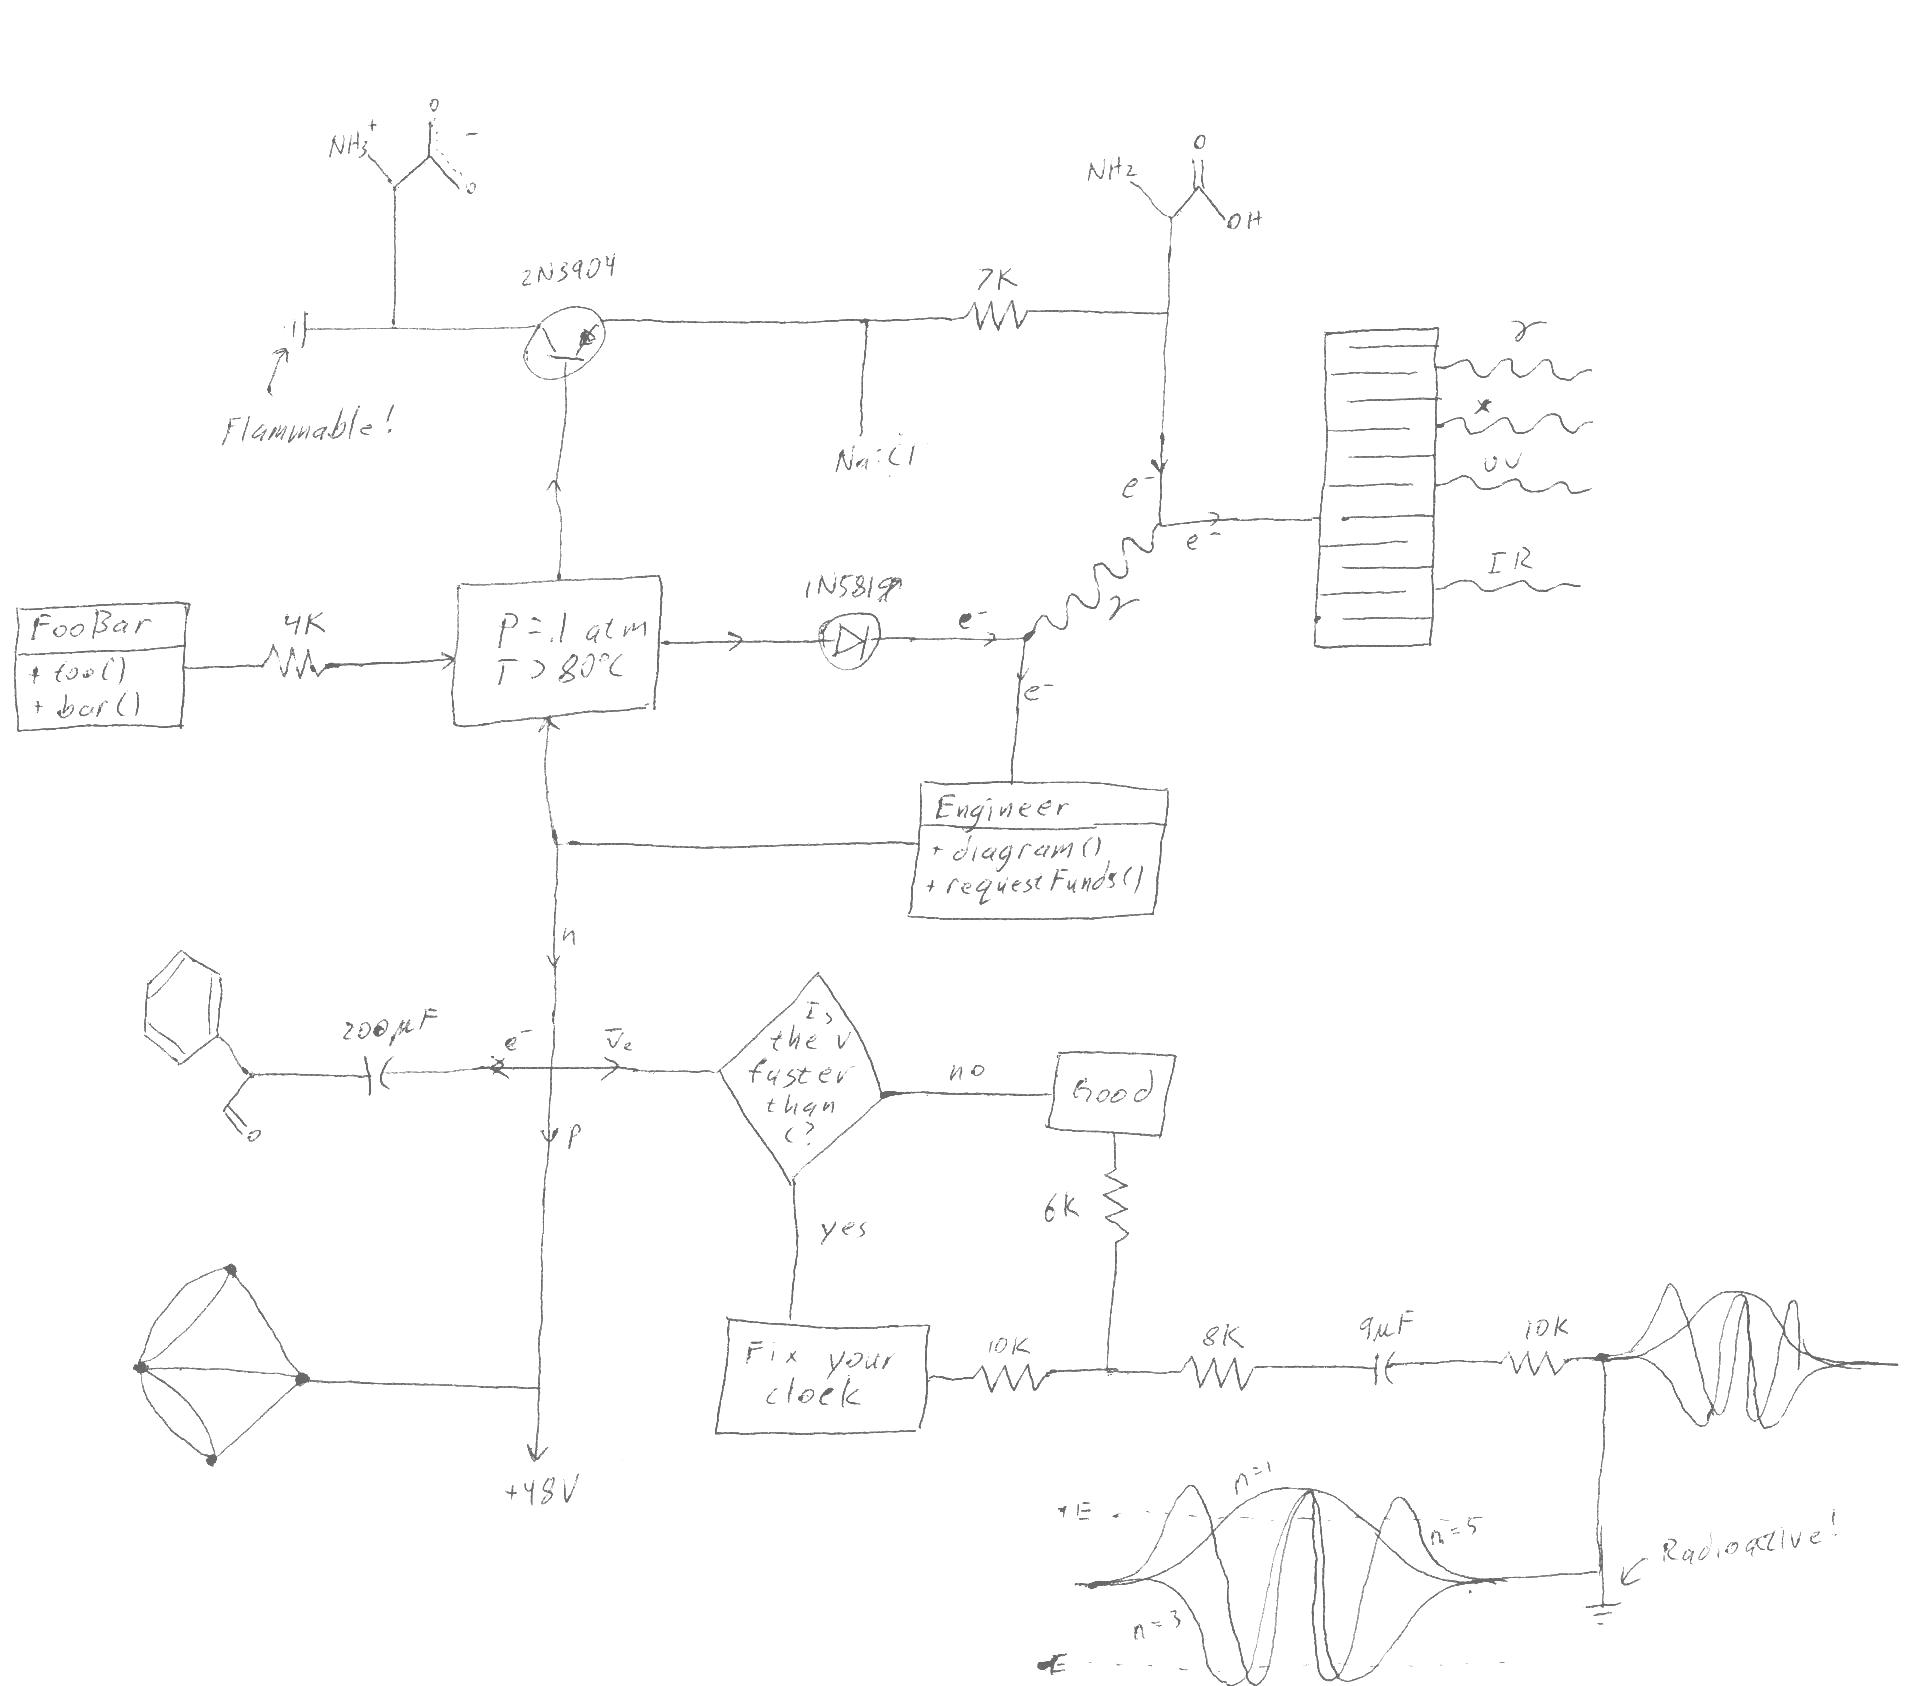 NH3+
O
-
O
NH2
O
OH
2N3904
7K
γ
Flammable!
x
Na:Cl
UV
e-
e-
IR
1N5819
γ
FooBar
+ foo()
+ bar()
4K
P=.1 atm
T > 80°C
e-
e-
Engineer
+ diagram()
+ requestFunds()
n
200μF
e-
ν̄e
Is
the ν
faster
than
c?
no
Good
O
p
yes
6K
Fix your
clock
10K
8K
9μF
10K
+48V
n=1
+E
n=5
Radioactive!
n=3
-E